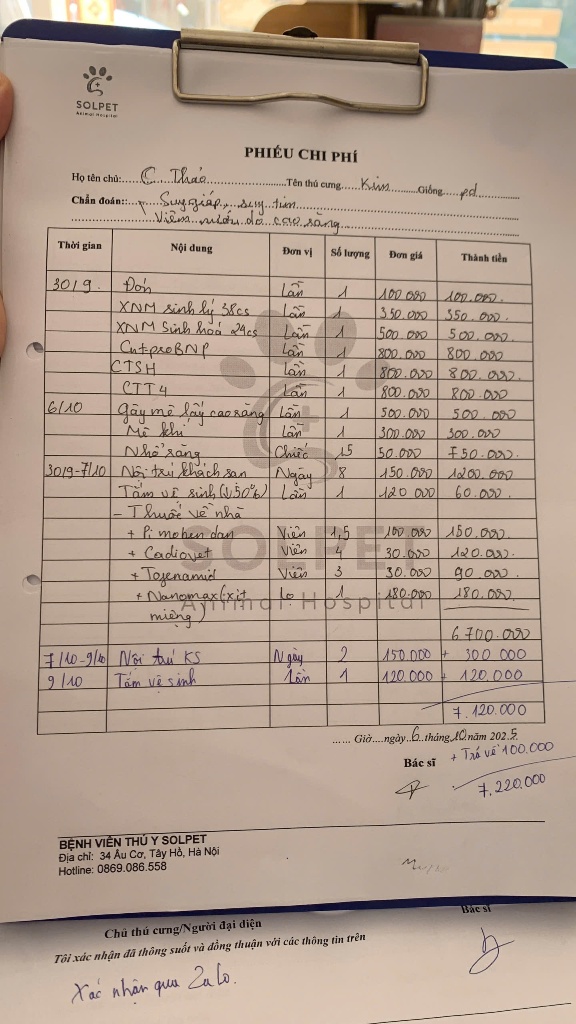 SOLPET
Animal Hospital
PHIẾU CHI PHÍ
Họ tên chủ:.....C. Thảo..........Tên thú cưng.....Kim.........Giống....pd
Chẩn đoán::....Suy giáp, suy tim
Viêm nướu do cao răng
Thời gian Nội dung Đơn vị Số lượng Đơn giá Thành tiền
30/9. Đón Lần 1 100.000 100.000.
XNM sinh lý 38cs Lần 1 350.000 350.000.
XNM Sinh hoá 24cs Lần 1 500.000 500.000.
Cnt-proBNP Lần 1 800.000 800.000
CTSH Lần 1 800.000 800.000.
CTT4 Lần 1 800.000 800.000
6/10 Gây mê lấy cao răng Lần 1 500.000 500.000
Mê khí Lần 1 300.000 300.000
Nhổ răng Chiếc 15 50.000 750.000.
30/9-7/10 Nội trú khách sạn Ngày 8 150.000 1200.000
Tắm vệ sinh (↓50%) Lần 1 120 000 60.000.
- Thuốc về nhà
+ Pimohendan Viên 1,5 100.000 150.000.
+ Cadiovet Viên 4 30.000 120.000.
+ Tojenamid Viên 3 30.000 90 000
+ Nanomax (xịt miệng) lọ 1 180.000 180.000
6.700.000
7/10-9/10 Nội trú KS Ngày 2 150.000 + 300 000
9/10 Tắm vệ sinh Lần 1 120.000 + 120.000
7.120.000
...... Giờ....ngày..6..tháng10.năm 2025.
Bác sĩ
+ Trả về 100.000
7.220.000
SOLPET
Animal Hospital
BỆNH VIỆN THÚ Y SOLPET
Địa chỉ: 34 Âu Cơ, Tây Hồ, Hà Nội
Hotline: 0869.086.558
Chủ thú cưng/Người đại diện
Bác sĩ
Tôi xác nhận đã thông suốt và đồng thuận với các thông tin trên
Xác nhận qua Zalo.